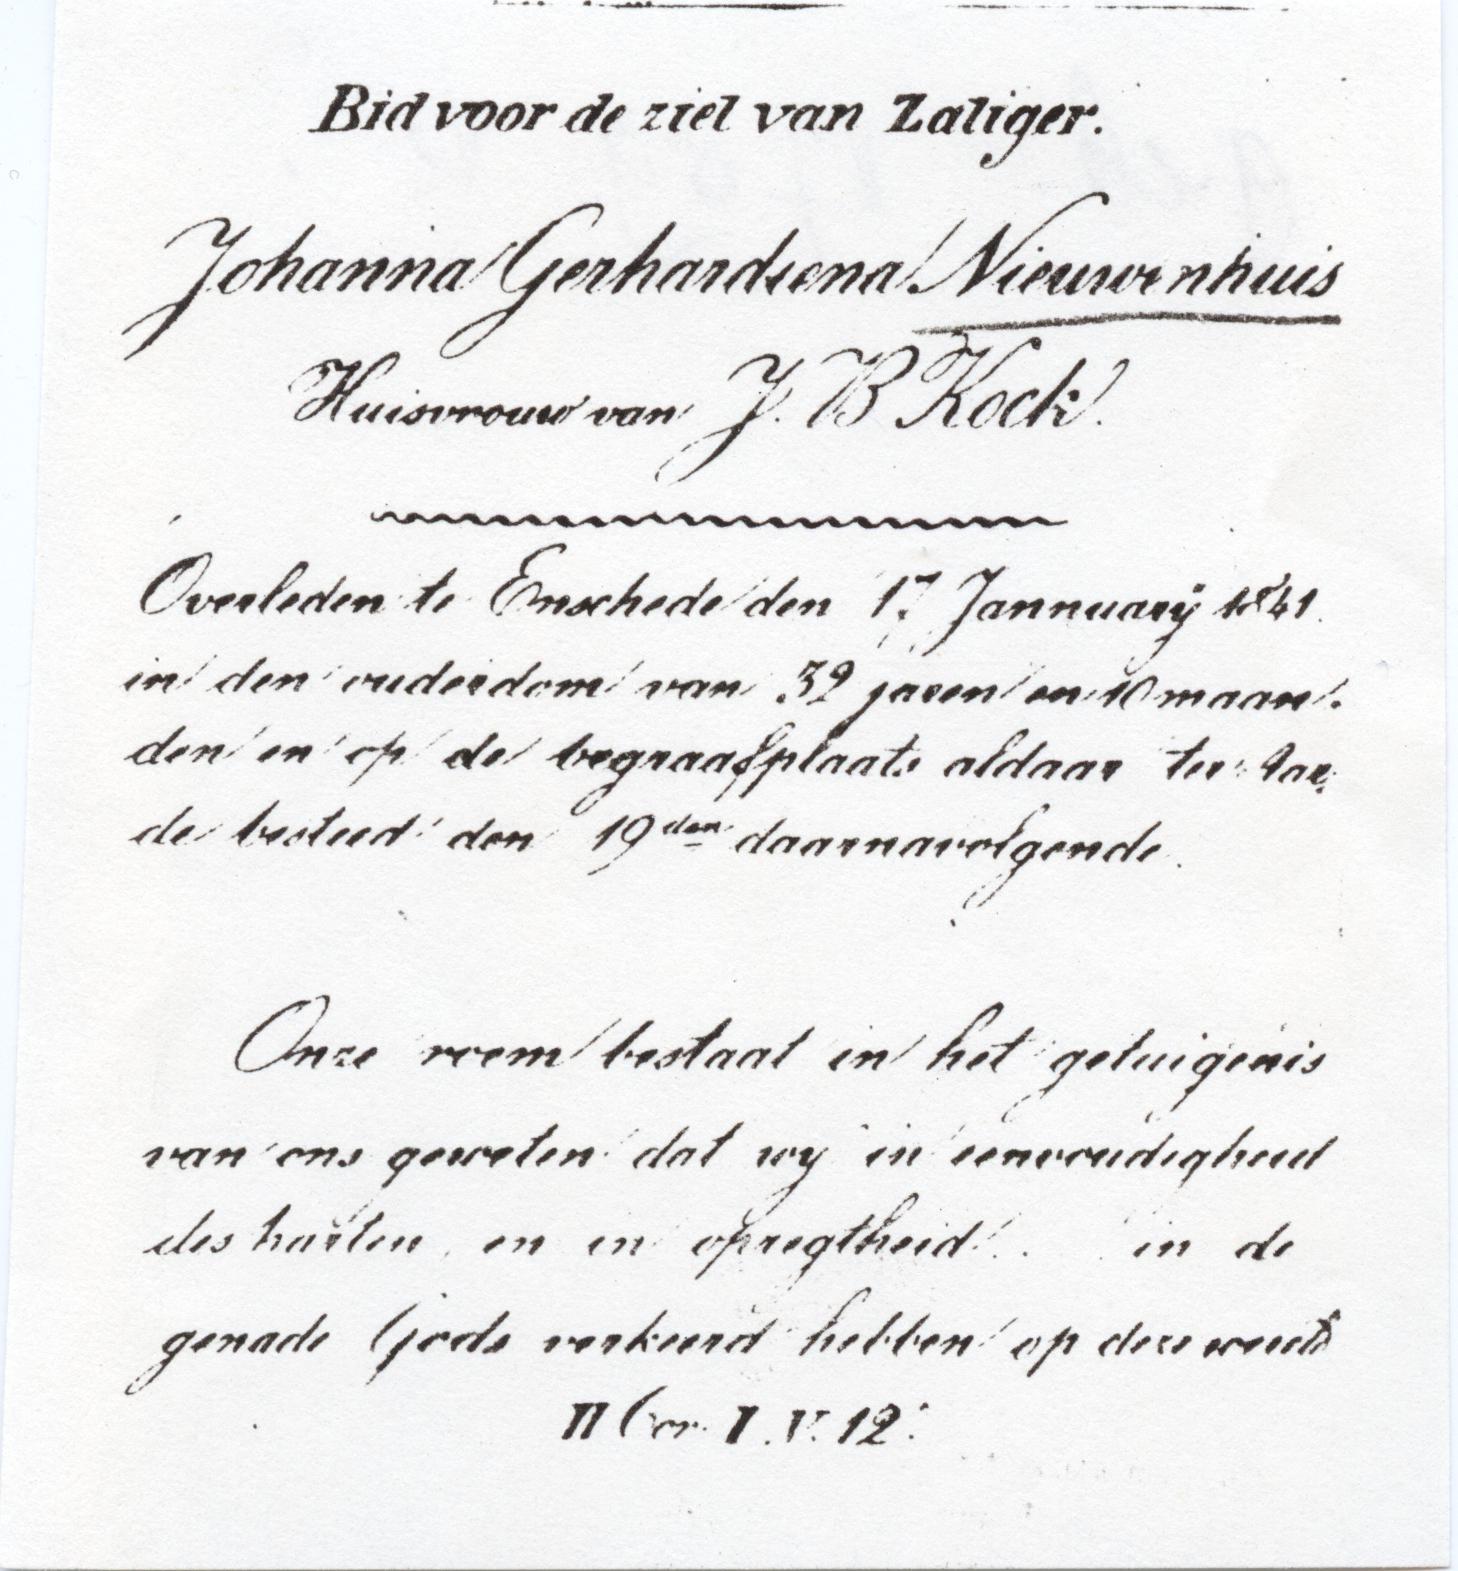 Bid voor de ziel van Zaliger.
Johanna Gerhardiena Nieuwenhuis
Huisvrouw van J. B Kock.
Overleden te Enschede den 17 Jannuarÿ 1841.
in den ouderdom van 32 jaren en 10 maan-
den en op de begraafplaats aldaar ter Aar-
de besteed den 19den daarnavolgende.
Onze roem bestaat in het getuigenis
van ons geweten dat wy in eenvoudigheid
des harten en in opregtheid in de
genade Gods verkeerd hebben op deze
II Cor. I. V. 12.